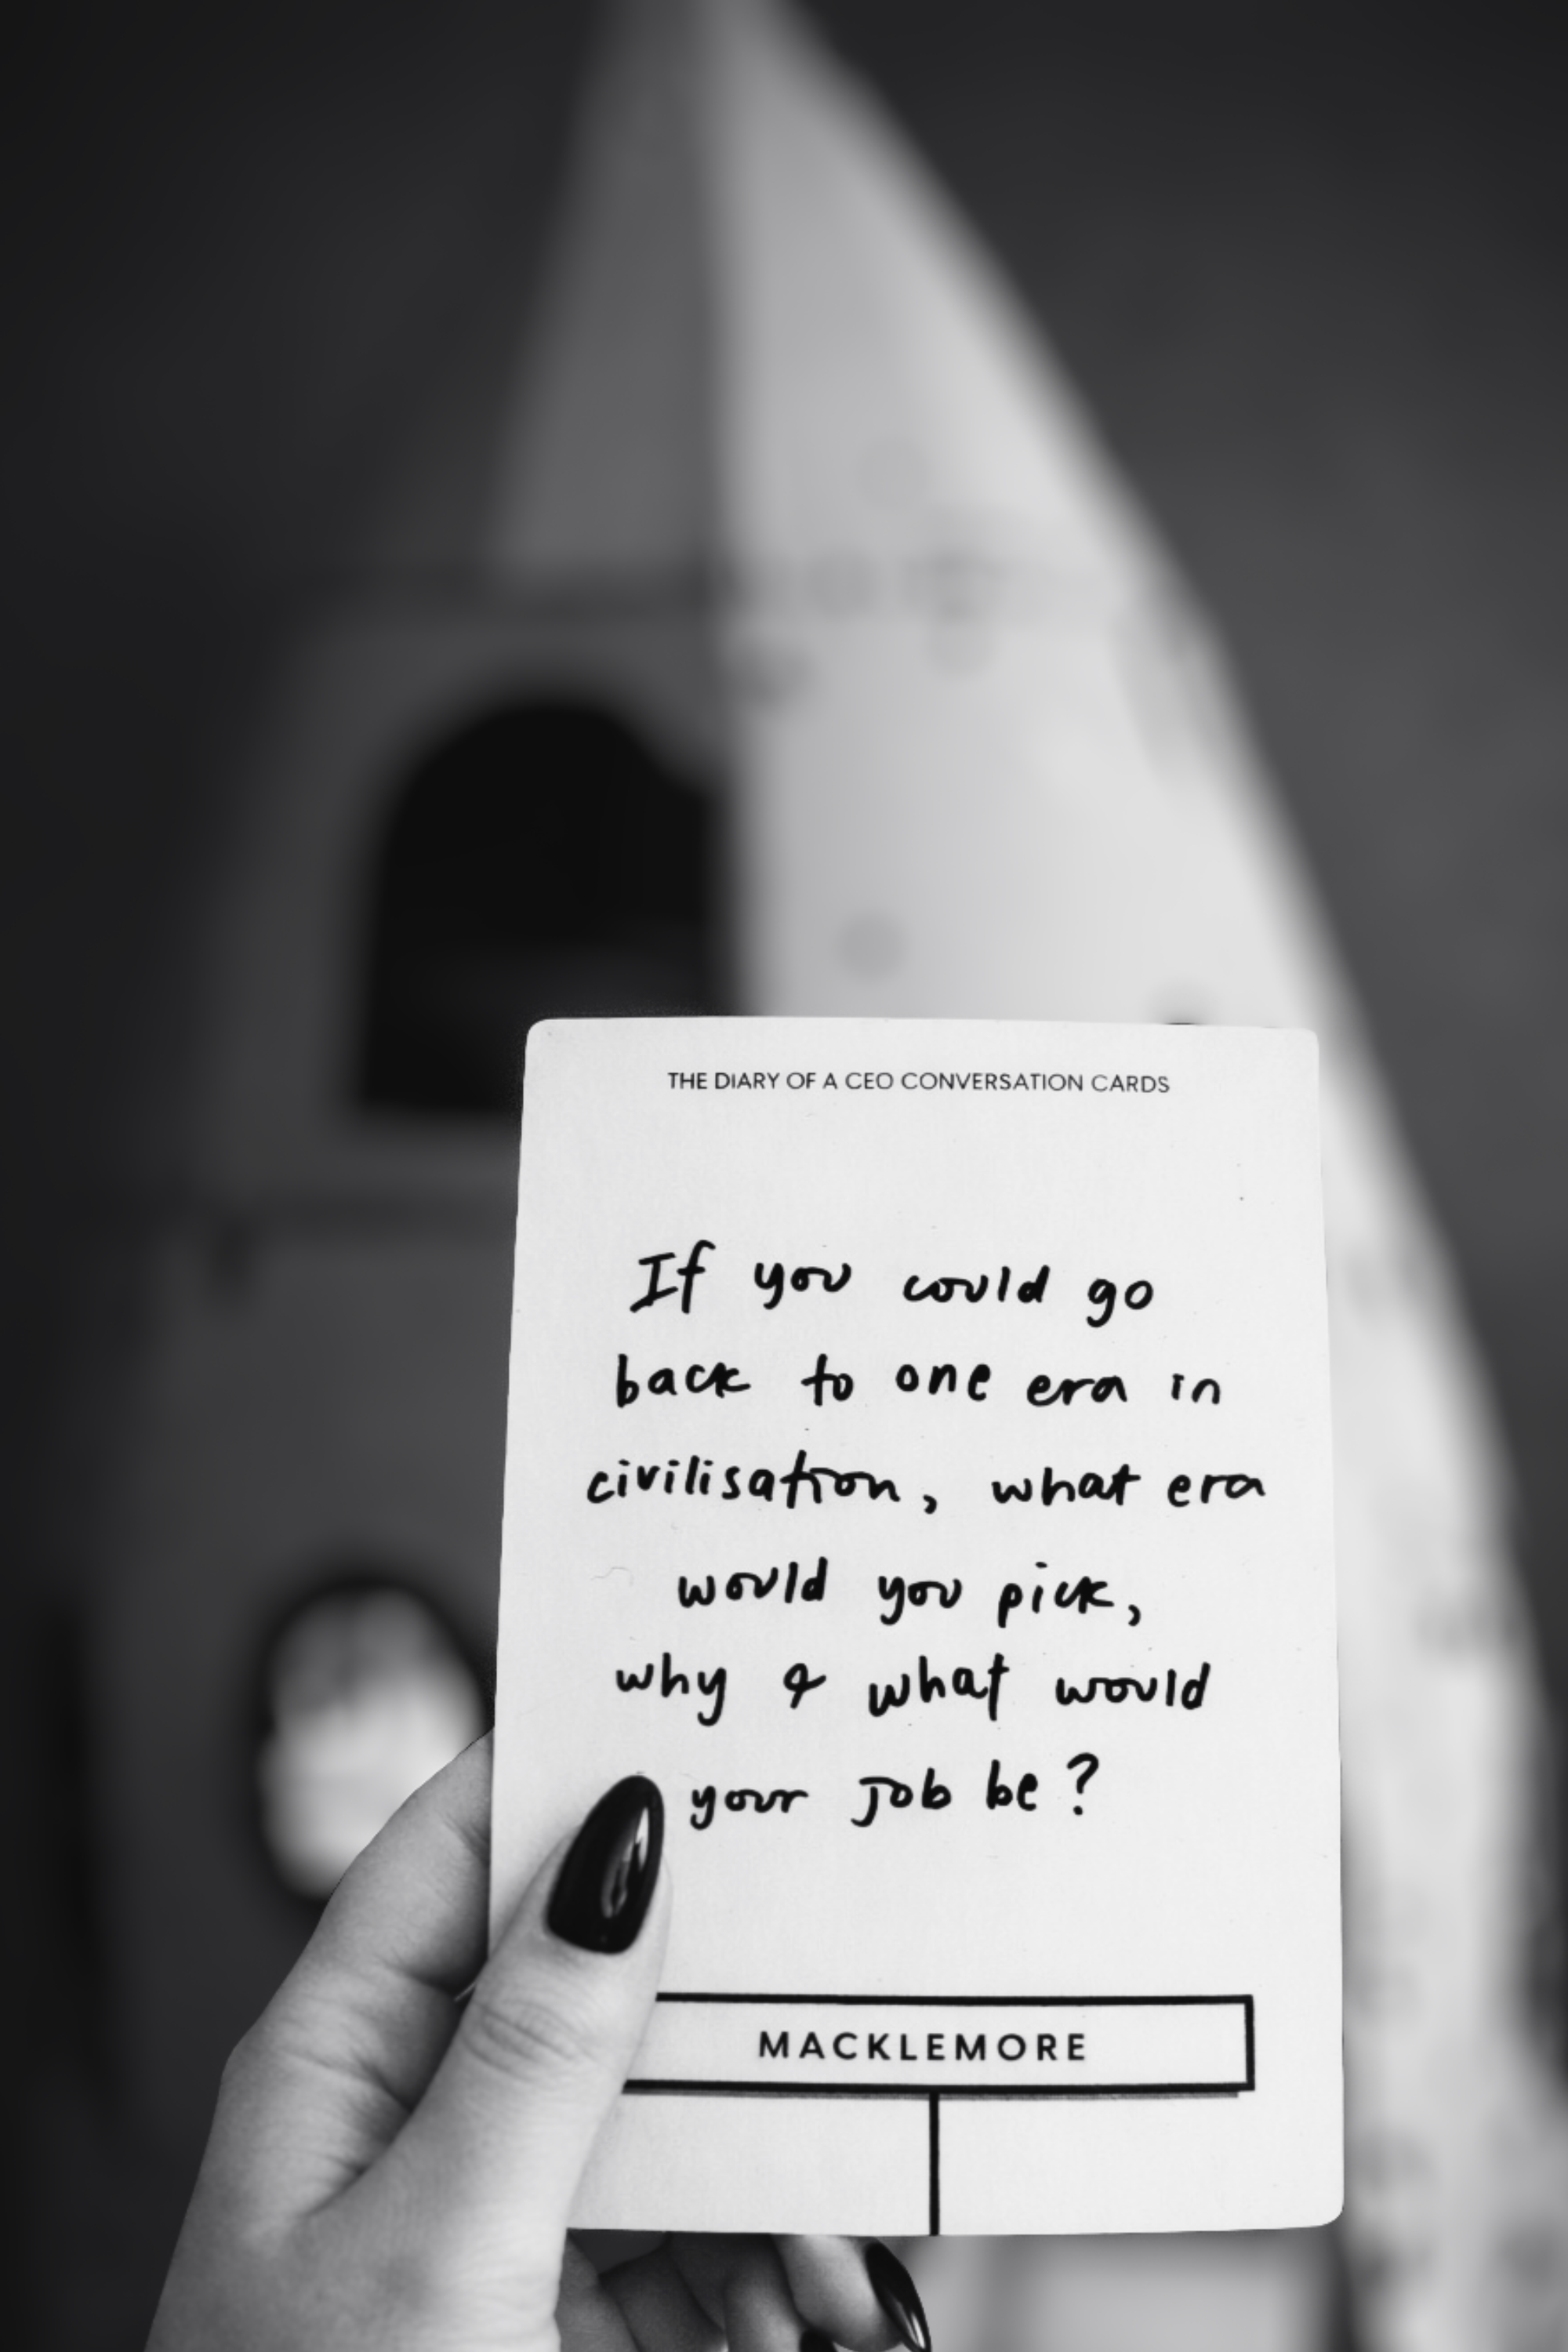 THE DIARY OF A CEO CONVERSATION CARDS
If you could go
back to one era in
civilisation, what era
would you pick,
why & what would
your job be?
MACKLEMORE